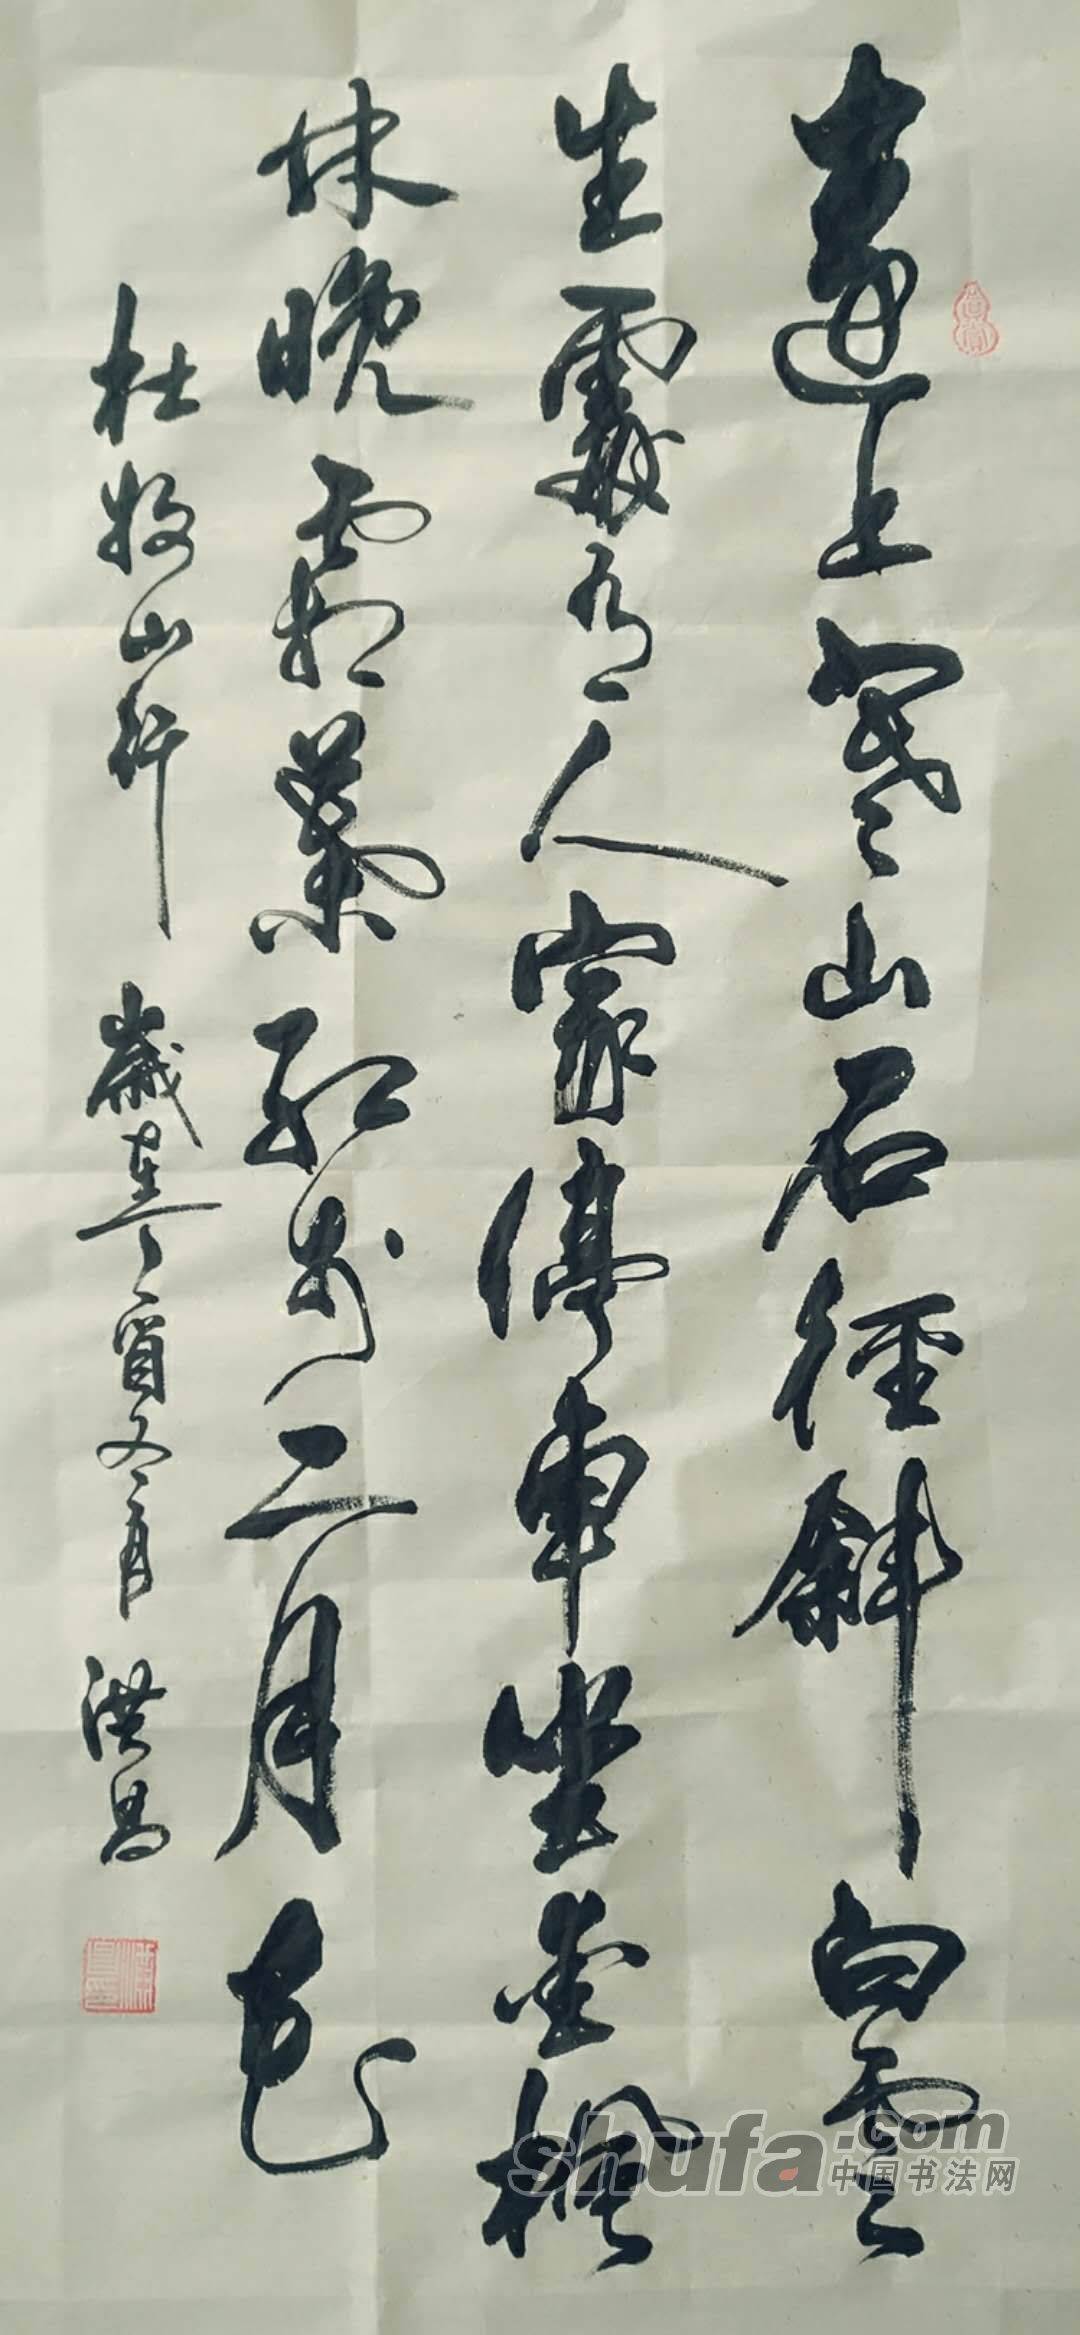 遠上寒山石徑斜白雲
生處有人家停車坐愛楓
林晚霜葉紅於二月花
杜牧山行 歲在冬月 洪昌
shufa.com
中国书法网